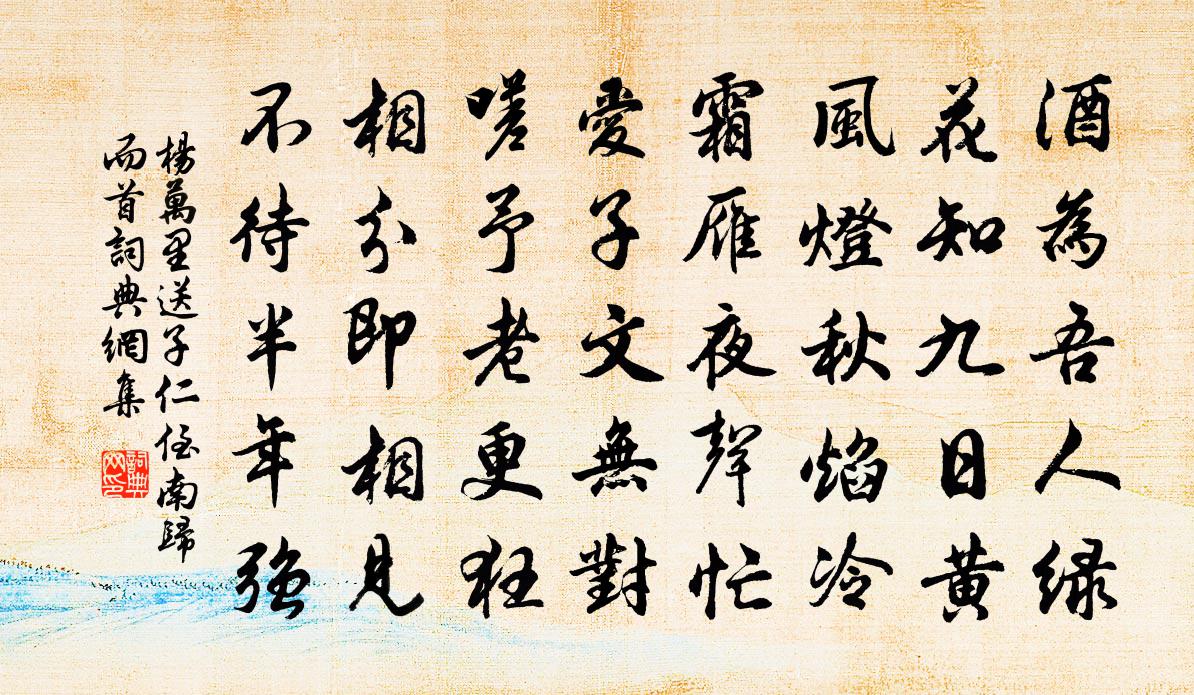 酒為吾人緑
花知九日黄
風燈秋焰冷
霜雁夜聲忙
愛子文無對
嗟予老更狂
相分即相見
不待半年強
楊萬里送子仁侄南歸
而首詞典網集
詞典
网印